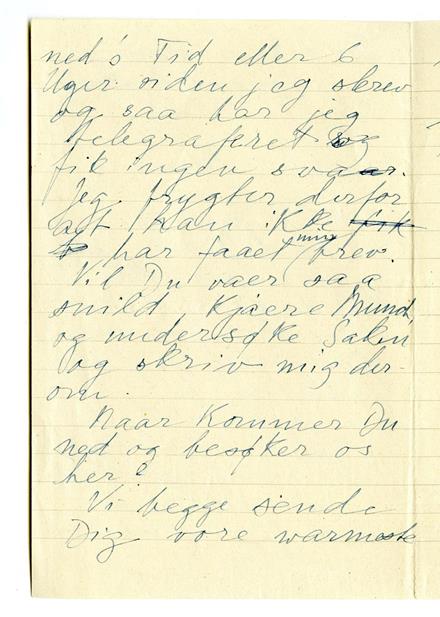 neds Tid eller 6
Uger siden jeg skrev
og saa har jeg
telegraferet og
fik ingen svaar.
Jeg frygter derfor
at han ikke fik
har faaet min brev.
Vil Du vaer saa
snild, Kjaere Munch,
og undersøke Saken
og skriv mig der-
om.
Naar Kommer Du
ned og besøker os
her?
Vi begge sende
Dig vore warmeste